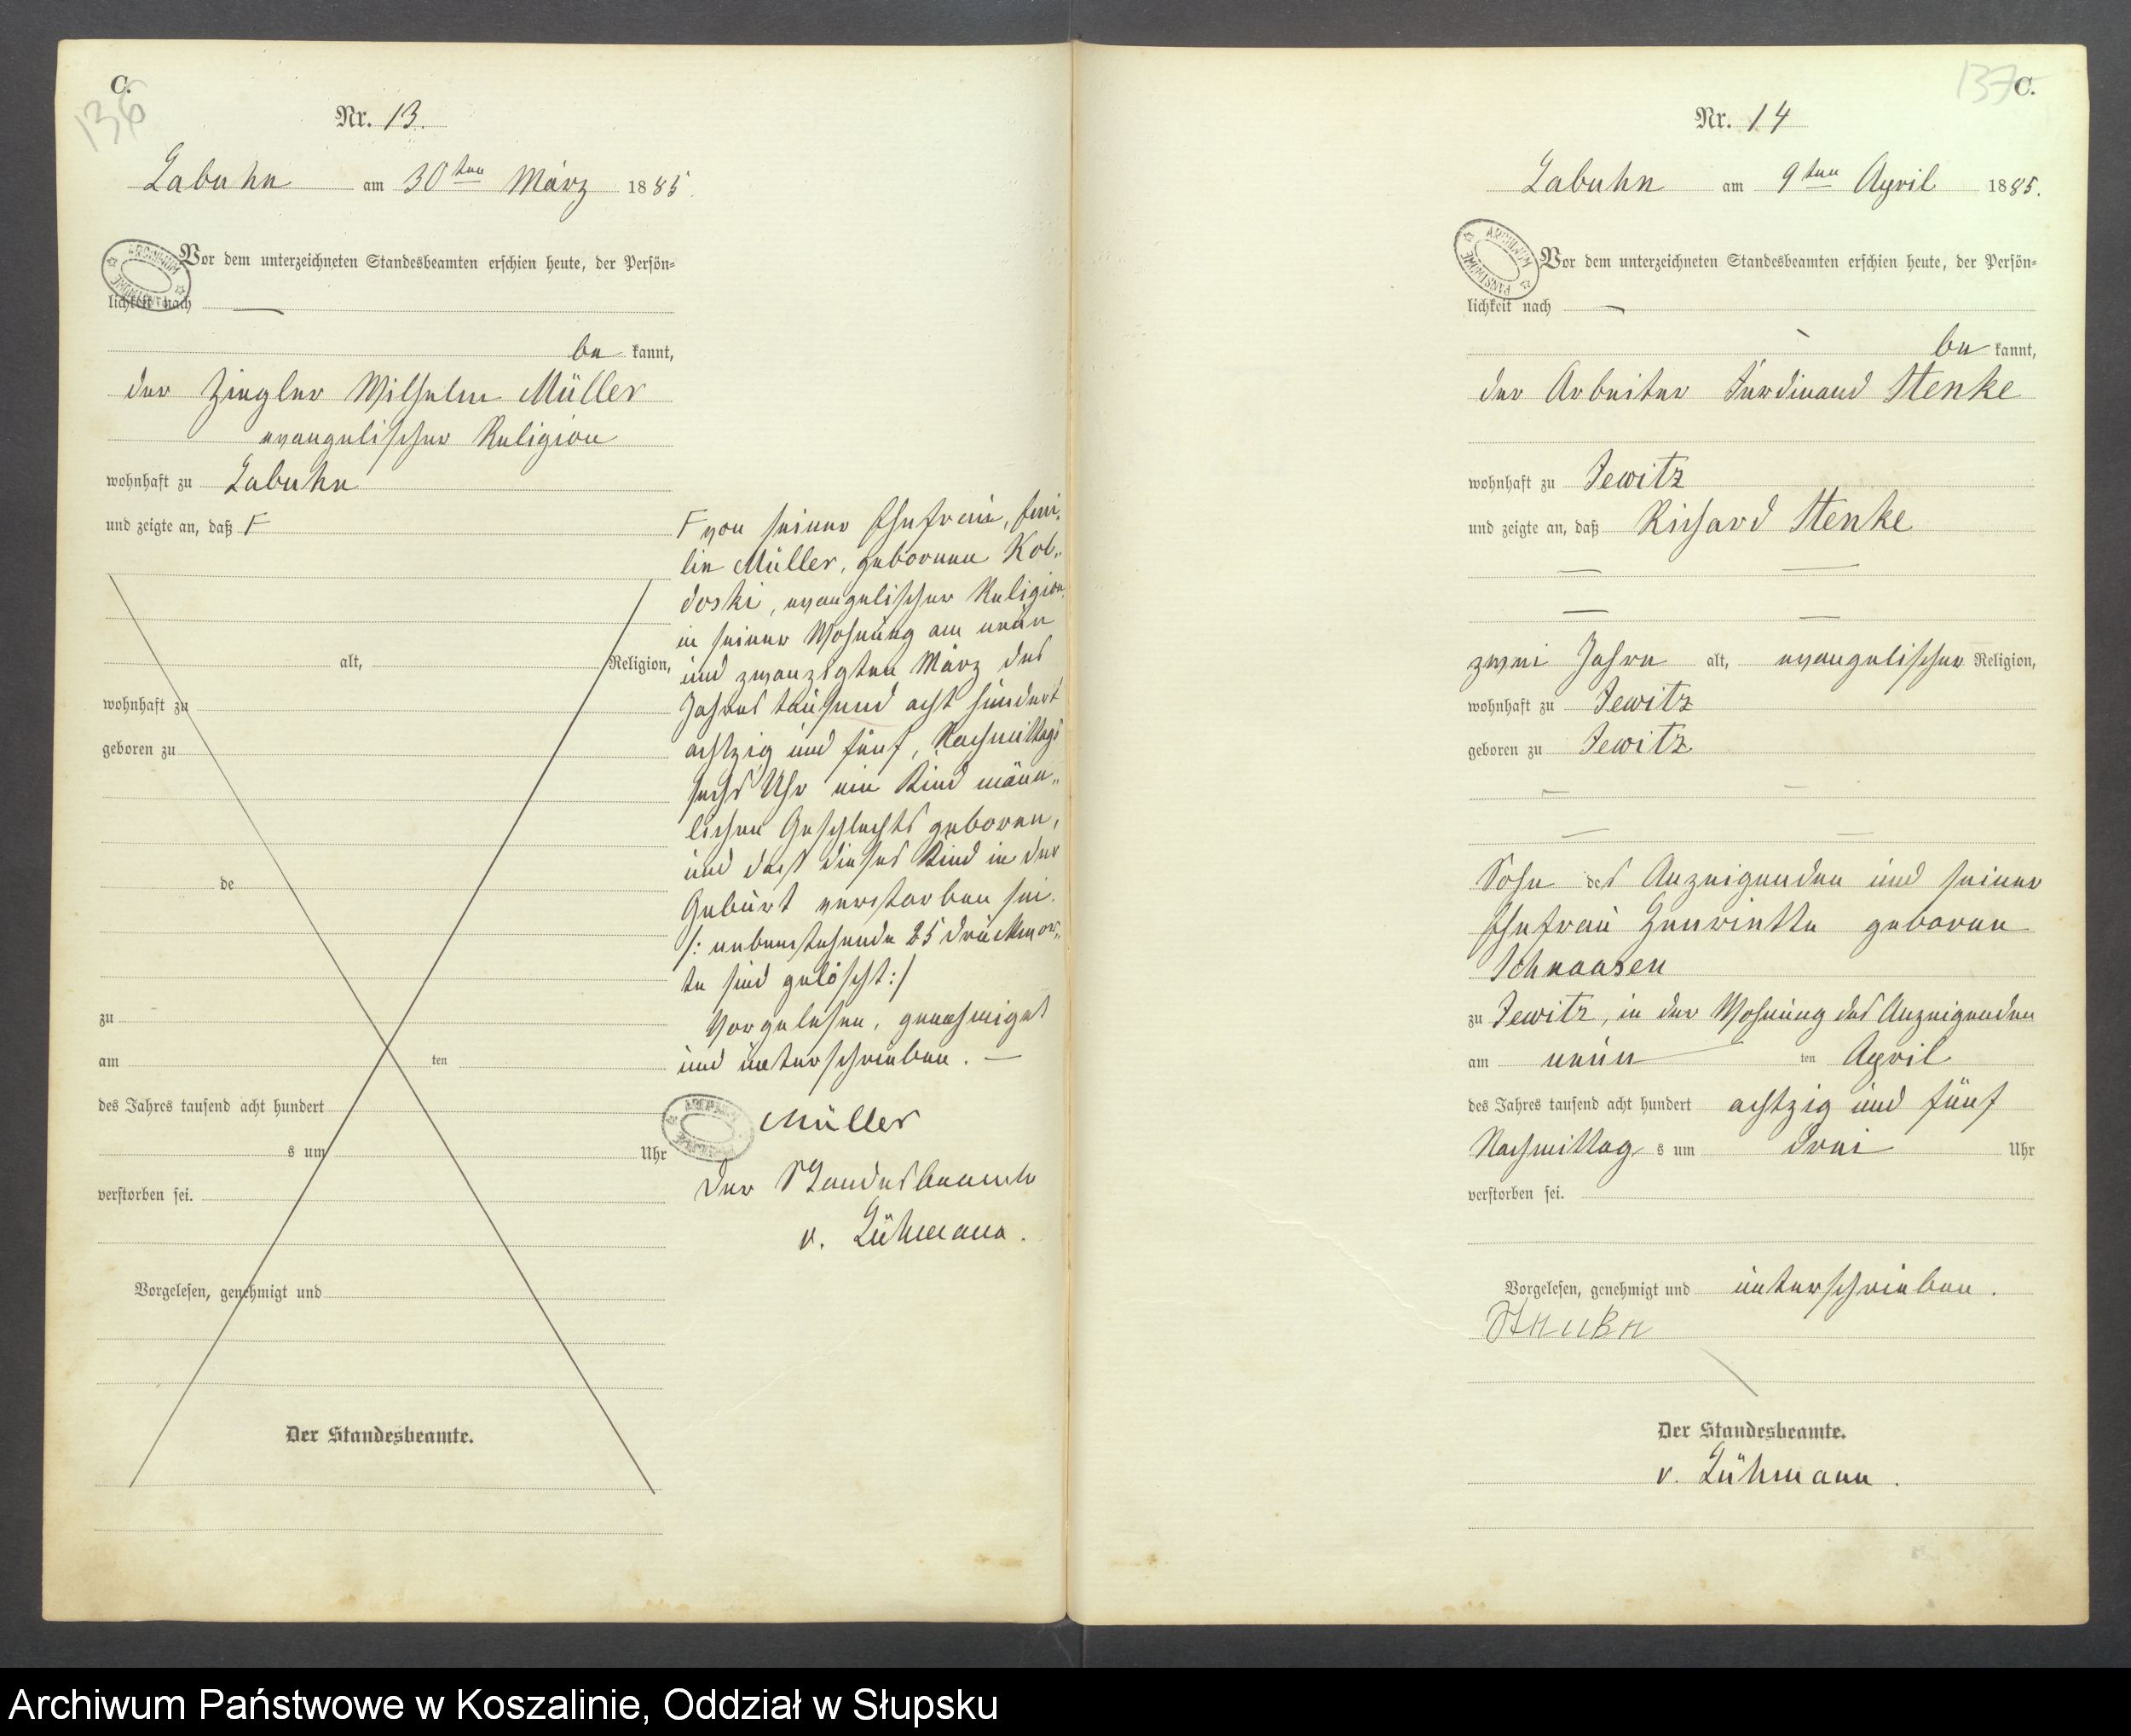 C.
136
Nr. 13.
Labuhn am 30ten März 1885.
Vor dem unterzeichneten Standesbeamten erschien heute, der Persön=
lichkeit nach —
be kannt,
der Ziegler Wilhelm Müller
evangelischer Religion
wohnhaft zu Labuhn
und zeigte an, daß F
alt, Religion,
wohnhaft zu
geboren zu
de
zu
am ten
des Jahres tausend acht hundert
s um Uhr
verstorben sei.
Vorgelesen, genehmigt und
Der Standesbeamte.
F von seiner Ehefrau, Emi„
lie Müller, geborenen Kol„
doski, evangelischer Religion,
in seiner Wohnung am neun
und zwanzigten März des
Jahres tausend acht hundert
achtzig und fünf, Nachmittags
sechs Uhr ein Kind männ„
lichen Geschlechts geboren,
und daß dieses Kind in der
Geburt verstorben sei.
/: nebenstehende 25 Druckwor„
te sind gelöscht :/
Vorgelesen, genehmigt
und unterschrieben. —
Müller
Der Standesbeamte
v. Lühmann.
137 C.
Nr. 14
Labuhn am 9ten April 1885.
Vor dem unterzeichneten Standesbeamten erschien heute, der Persön=
lichkeit nach —
be kannt,
der Arbeiter Ferdinand Stenke
wohnhaft zu Jewitz
und zeigte an, daß Richard Stenke
zwei Jahre alt, evangelischer Religion,
wohnhaft zu Jewitz
geboren zu Jewitz
Sohn des Anzeigenden und seiner
Ehefrau Henriette geborene
Schnaasen
zu Jewitz, in der Wohnung des Anzeigenden
am neun ten April
des Jahres tausend acht hundert achtzig und fünf
Nachmittag s um drei Uhr
verstorben sei.
Vorgelesen, genehmigt und unterschrieben.
Der Standesbeamte.
v. Lühmann.
Archiwum Państwowe w Koszalinie, Oddział w Słupsku